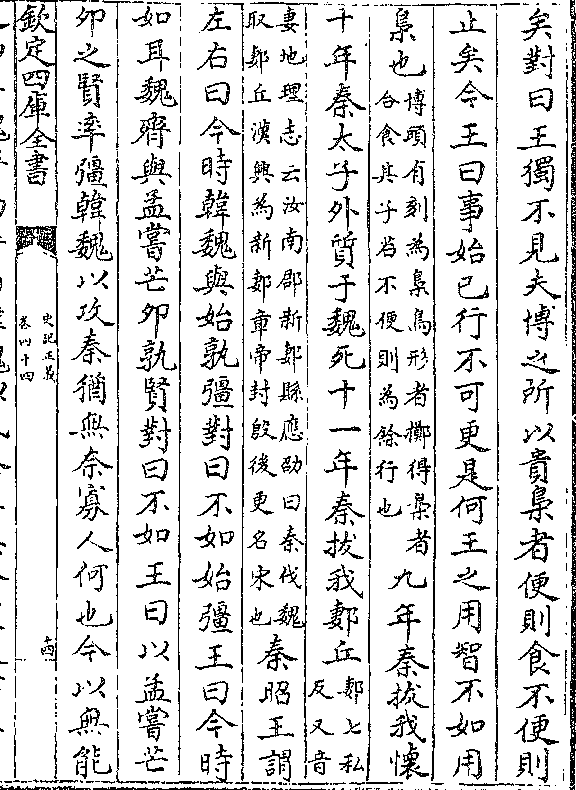 矣對曰王獨不見夫博之所以貴梟者便則食不便則
止矣今王曰事始已行不可更是何王之用智不如用
梟也博頭有刻為梟鳥形者擲得梟者
合食其子若不便則為餘行也九年秦拔我懷
十年秦太子外質于魏死十一年秦拔我郪丘郪七私
反又音
妻地理志云汝南郡新郪縣應劭曰秦伐魏
取郪丘漢興為新郪章帝封殷後更名宋也秦昭王謂
左右曰今時韓魏與始孰彊對曰不如始彊王曰今時
如耳魏齊與孟嘗芒卯孰賢對曰不如王曰以孟嘗芒
卯之賢率彊韓魏以攻秦猶無奈寡人何也今以無能
欽定四庫全書
史記正義
卷四十四
十四